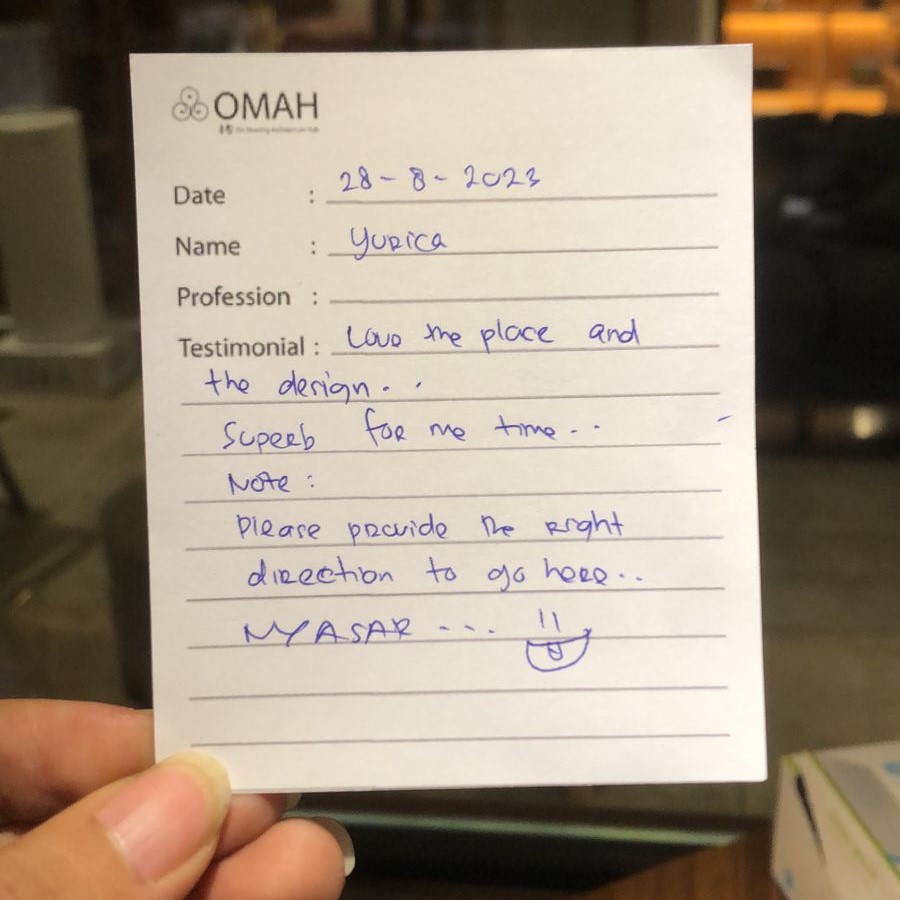 OMAH
Date : 28-8-2023
Name : Yurica
Profession :
Testimonial : Love the place and
the design. .
Superb for me time. .
Note :
Please provide the right
direction to go here. .
NYASAR - - -